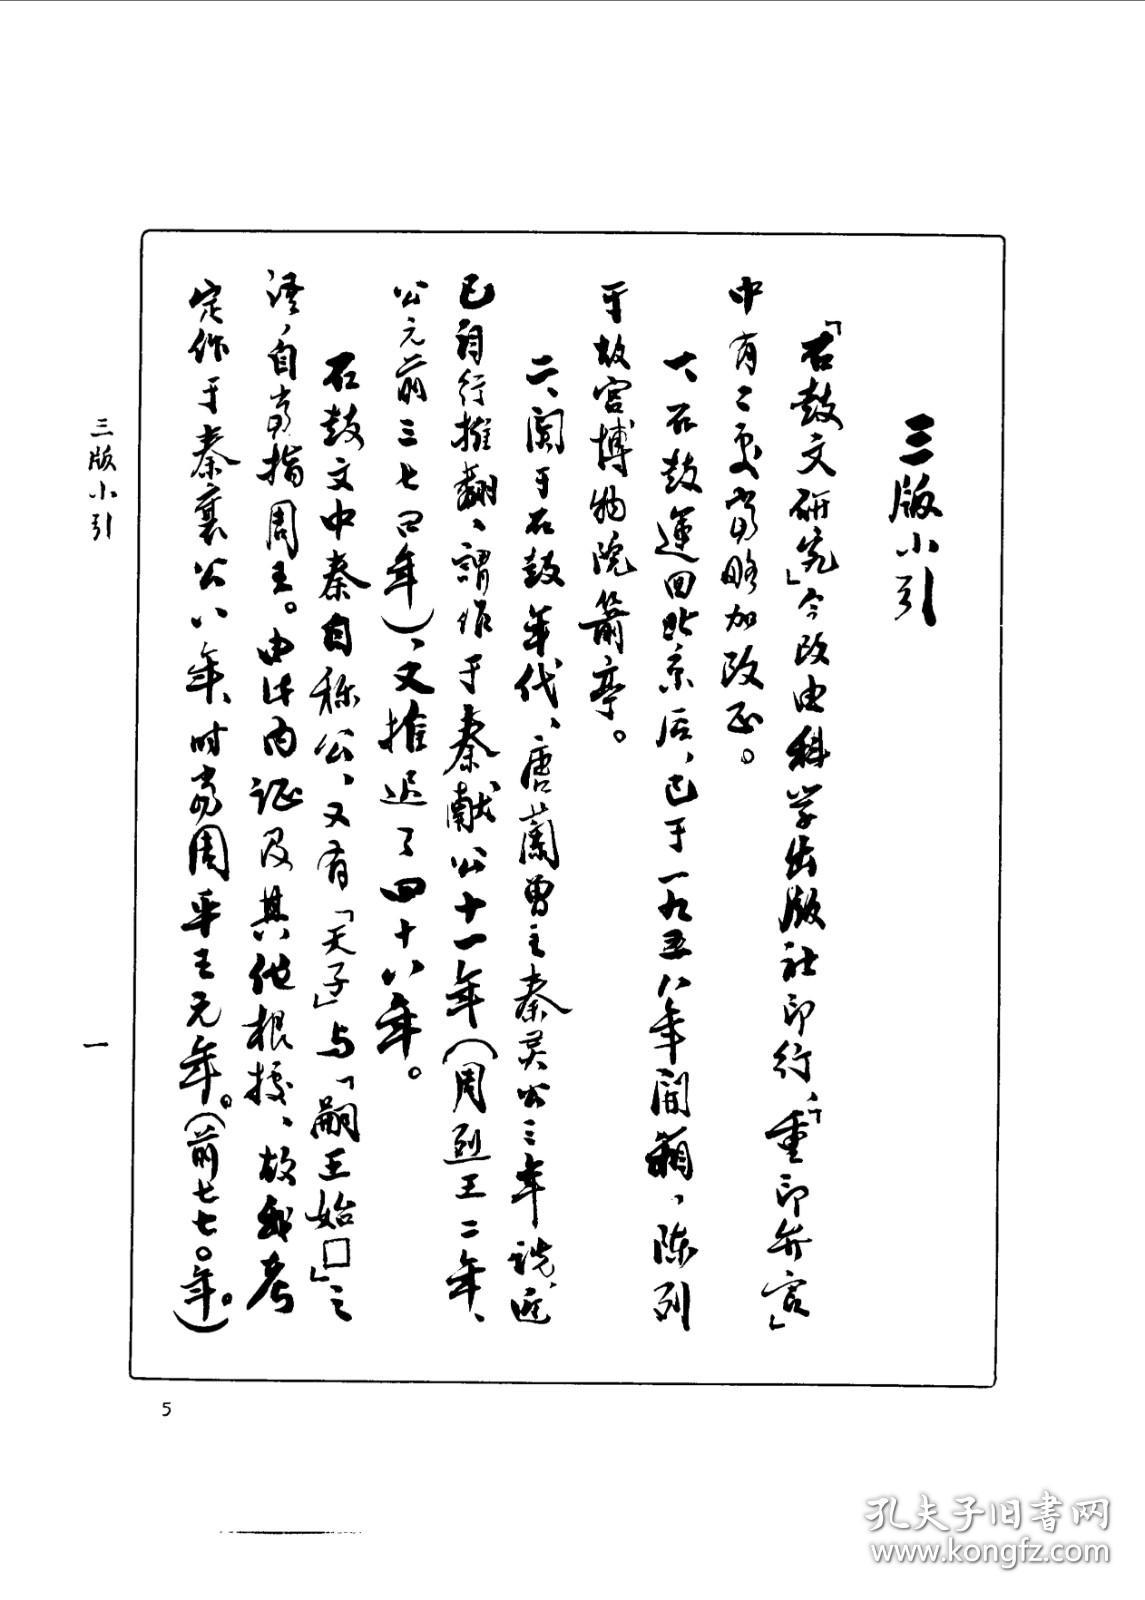 三版小引
「石鼓文研究」今改由科学出版社印行，「重印弁言」
中有二处當略加改正。
一、石鼓運回北京后，已于一九五八年開箱，陈列
于故宫博物院箭亭。
二、関于石鼓年代、唐蘭曽主秦灵公三年説，近
已自行推翻、謂作于秦献公十一年（周烈王二年、
公元前三七四年）、又推迟了四十八年。
石鼓文中秦自称公、又有「天子」与「嗣王始□」之
语，自當指周王。由此内证及其他根据、故我考
定作于秦襄公八年、时當周平王元年。（前七七〇年。）
三版小引
一
5
孔夫子旧书网
www.kongfz.com